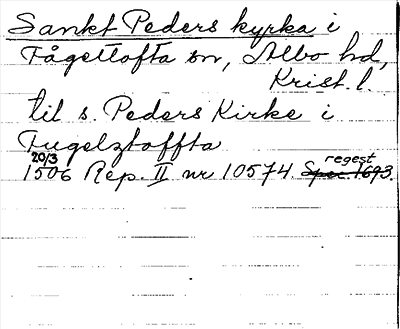 Sankt Peders kyrka i
Fågeltofta sn, Albo hd,
Krist. l.
til s. Peders Kirke i
Fugelztoffta
20/3 regest
1506 Rep. II nr 10574. Spec. 1693.